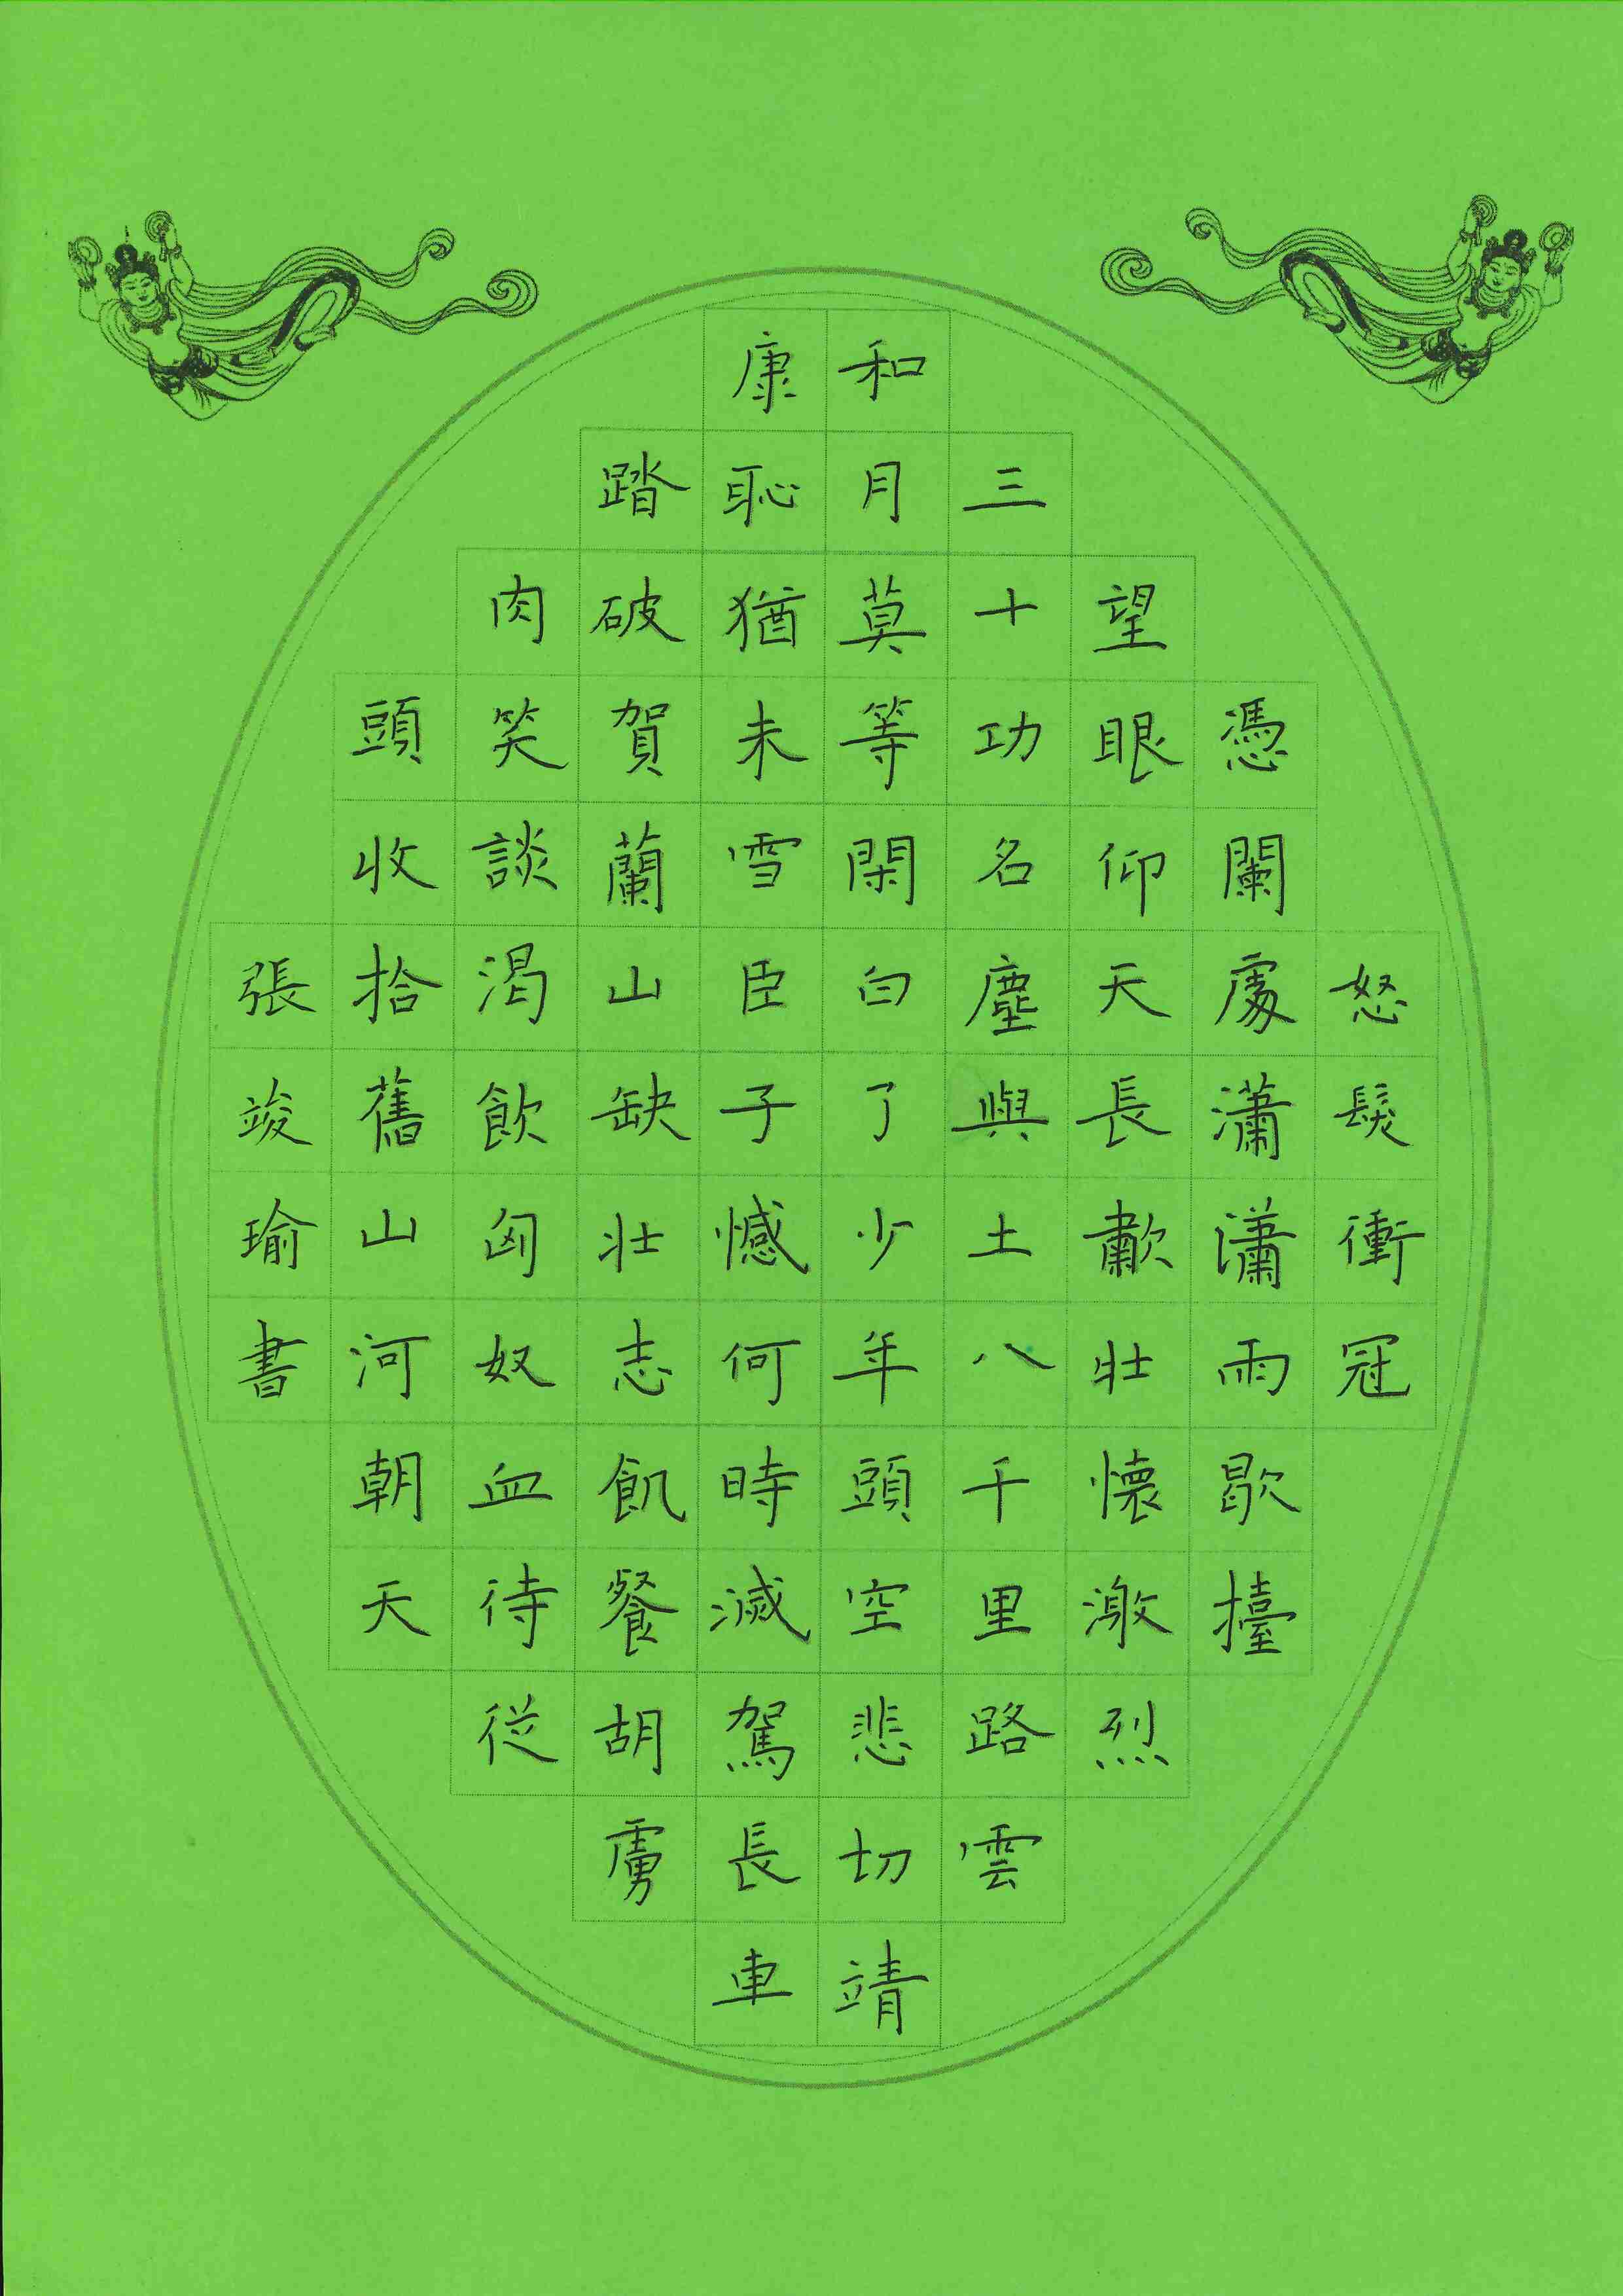 怒髮衝冠
憑闌處瀟瀟雨歇擡
望眼仰天長歗壯懷激烈
三十功名塵與土八千里路雲
和月莫等閑白了少年頭空悲切靖
康恥猶未雪臣子憾何時滅駕長車
踏破賀蘭山缺壯志飢餐胡虜
肉笑談渴飲匈奴血待從
頭收拾舊山河朝天
張竣瑜書